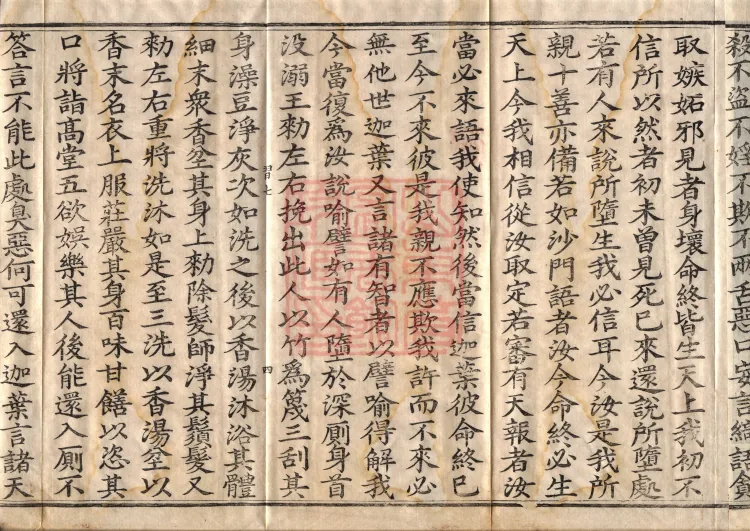 殺不盜不婬不欺不兩舌惡口妄言綺語貪
取嫉妬邪見者身壞命終皆生天上我初不
信所以然者初未曾見死已來還說所墮處
若有人來說所墮生我必信耳今汝是我所
親十善亦備若如沙門語者汝今命終必生
天上今我相信從汝取定若審有天報者汝
當必來語我使知然後當信迦葉彼命終已
至今不來彼是我親不應欺我許而不來必
無他世迦葉又言諸有智者以譬喻得解我
今當復爲汝說喻譬如有人墮於深厠身首
没溺王勑左右挽出此人以竹爲篾三刮其
習七
四
身澡豆淨灰次如洗之後以香湯沐浴其體
細末衆香坌其身上勑除髮師淨其鬚髮又
勑左右重將洗沐如是至三洗以香湯坌以
香末名衣上服莊嚴其身百味甘饍以恣其
口將詣髙堂五欲娛樂其人後能還入厠不
答言不能此處臭惡何可還入迦葉言諸天